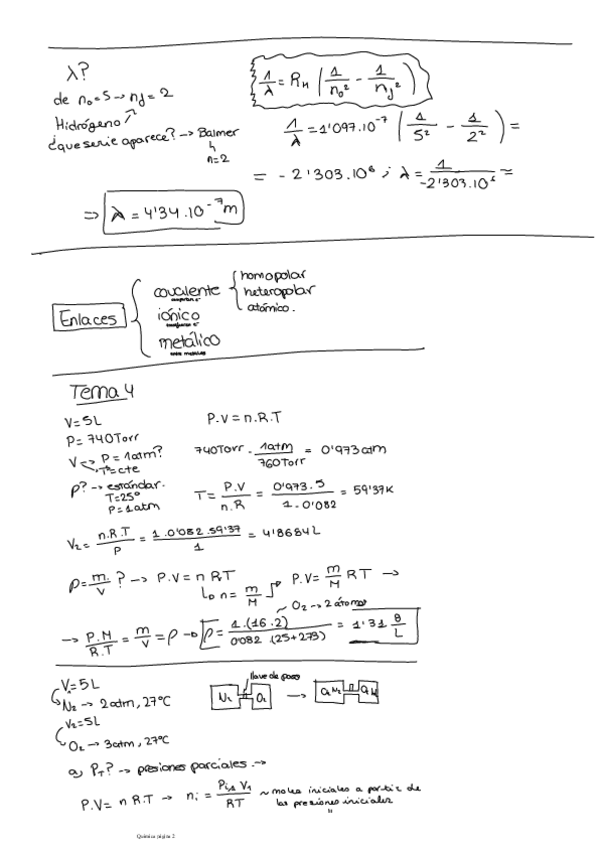 λ?
de n₀=5 → nf=2
Hidrógeno
¿que serie aparece? → Balmer
n=2
1/λ = R_H (1/n₀² - 1/nf²)
1/λ = 1'097.10⁻⁷ (1/5² - 1/2²) =
= -2'303.10⁶ ; λ = 1/-2'303.10⁶ =
⇒ λ = 4'34.10⁻⁷m
Enlaces
covalente
homopolar
heteropolar
atómico.
iónico
metálico
Tema 4
V=5L
P.V=n.R.T
P=740Torr
V <-> P=1atm?
Tª=cte
740Torr . 1atm/760Torr = 0'973atm
ρ? → estándar.
T=25º
P=1atm
T = P.V/n.R = 0'973.5/1.0'082 = 59'37K
V₂ = n.R.T/P = 1.0'082.59'37/1 = 4'8684L
ρ = m/V ? → P.V=nRT
↳ n = m/M
P.V = m/M RT →
~ O₂ → 2 átomos
→ P.M/R.T = m/V = ρ → ρ = 1.(16.2)/0'082.(25+273) = 1'31 g/L
V₁=5L
N₂ → 2atm, 27ºC
V₂=5L
O₂ → 3atm, 27ºC
llave de paso
N₂ O₂ → O₂N₂ O₂N₂
a) P_T? → presiones parciales. →
P.V = nR.T → nᵢ = Pᵢ,₁ V₁/RT ~ moles iniciales a partir de
las presiones iniciales
Química página 2